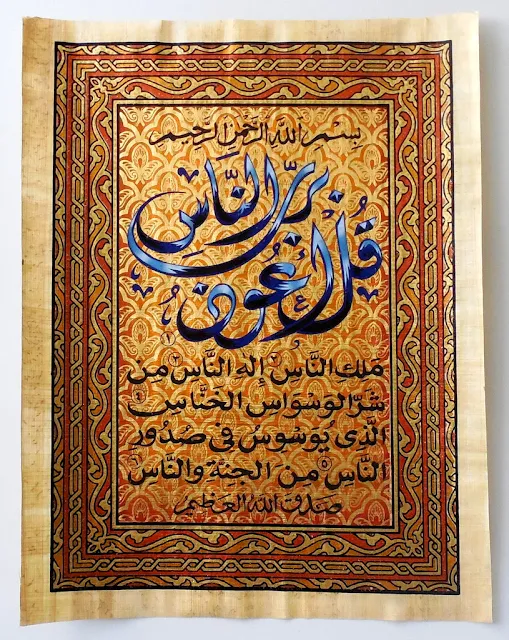 بِسْمِ اللهِ الرَّحْمَنِ الرَّحِيمِ
قُلْ أَعُوذُ بِرَبِّ النَّاسِ ١
مَلِكِ النَّاسِ ٢ إِلَهِ النَّاسِ ٣ مِن
شَرِّ الوَسْوَاسِ الخَنَّاسِ ٤
الَّذِى يُوَسْوِسُ فِى صُدُورِ
النَّاسِ ٥ مِنَ الجِنَّةِ وَالنَّاسِ ٦
صَدَقَ اللهُ العَظِيمُ